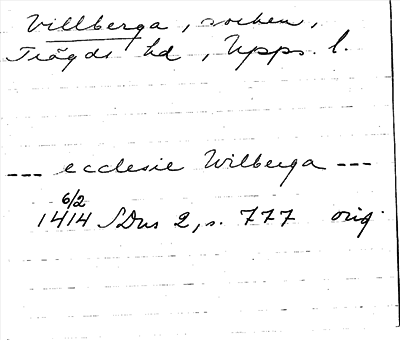 Villberga, socken,
Trögds hd, Upps. l.
--- ecclesie Wilberga ---
6/2
1414 SDns 2, s. 777 orig.